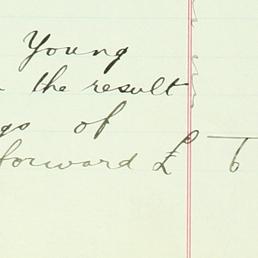 Young
the result
of
forward £ 6